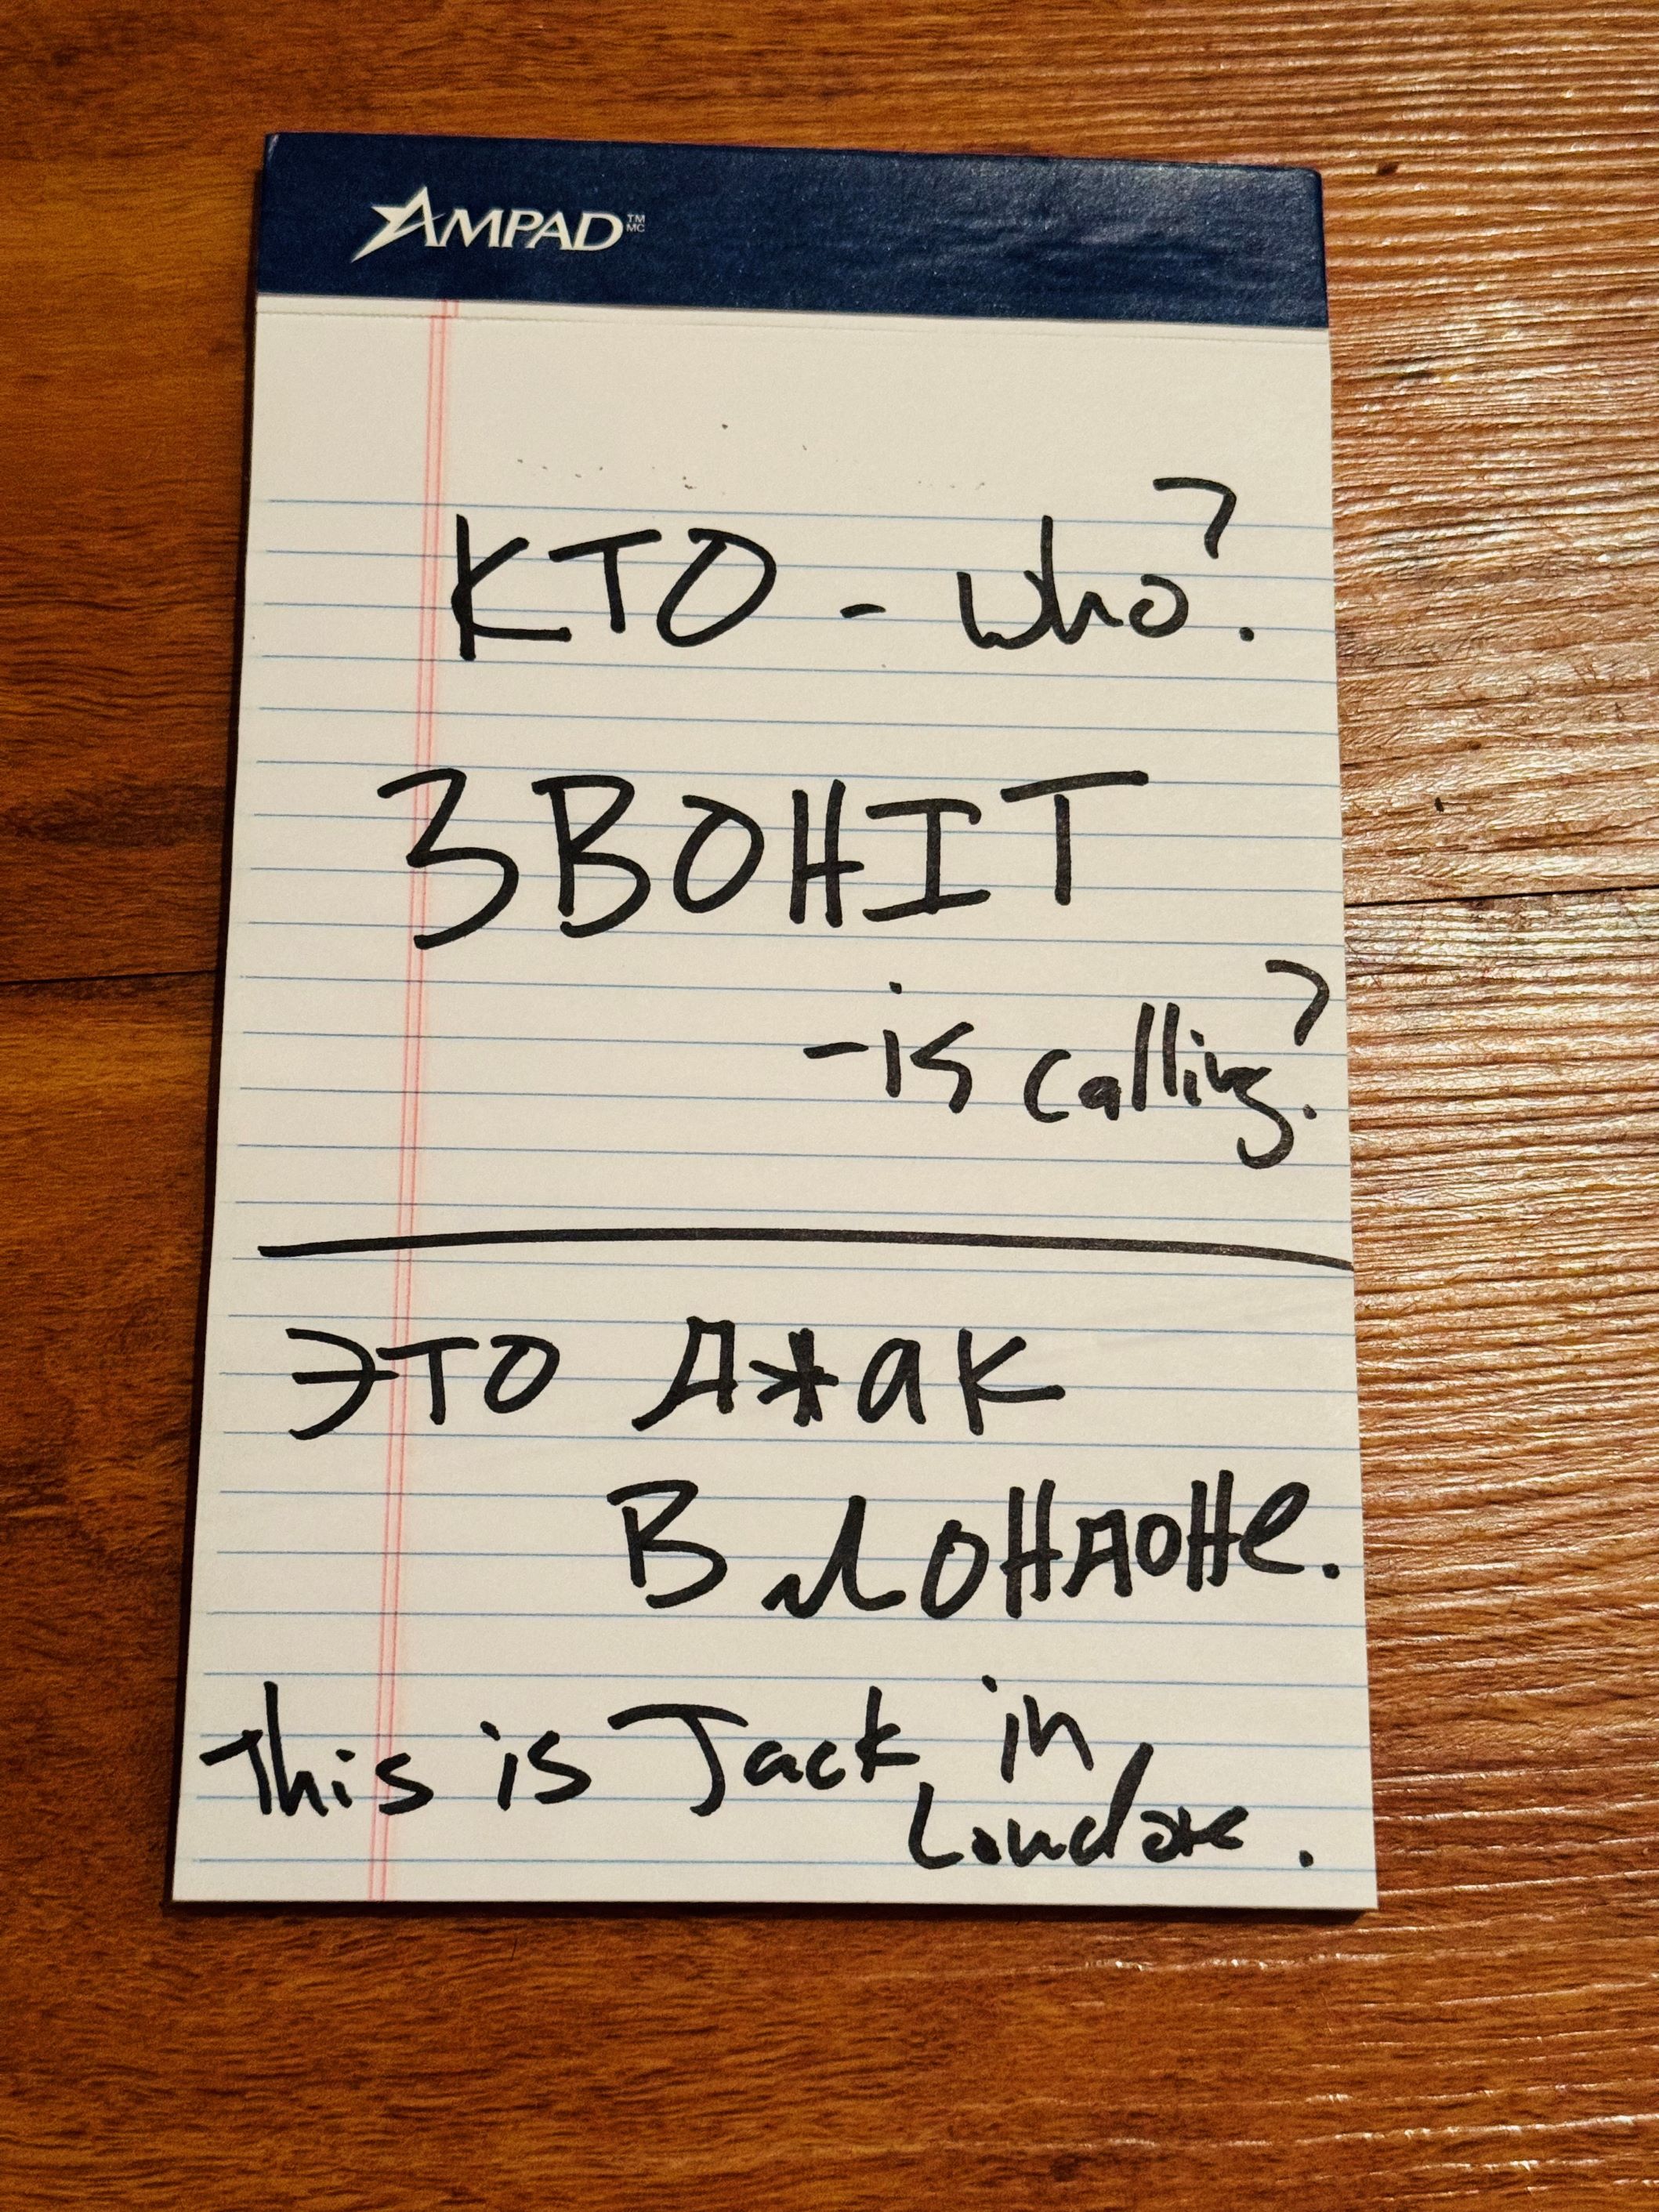 AMPAD TM MC
КТО - who?
ЗВОНІТ
- is calling?
ЭТО Джак
В Лондоне.
This is Jack in
London.